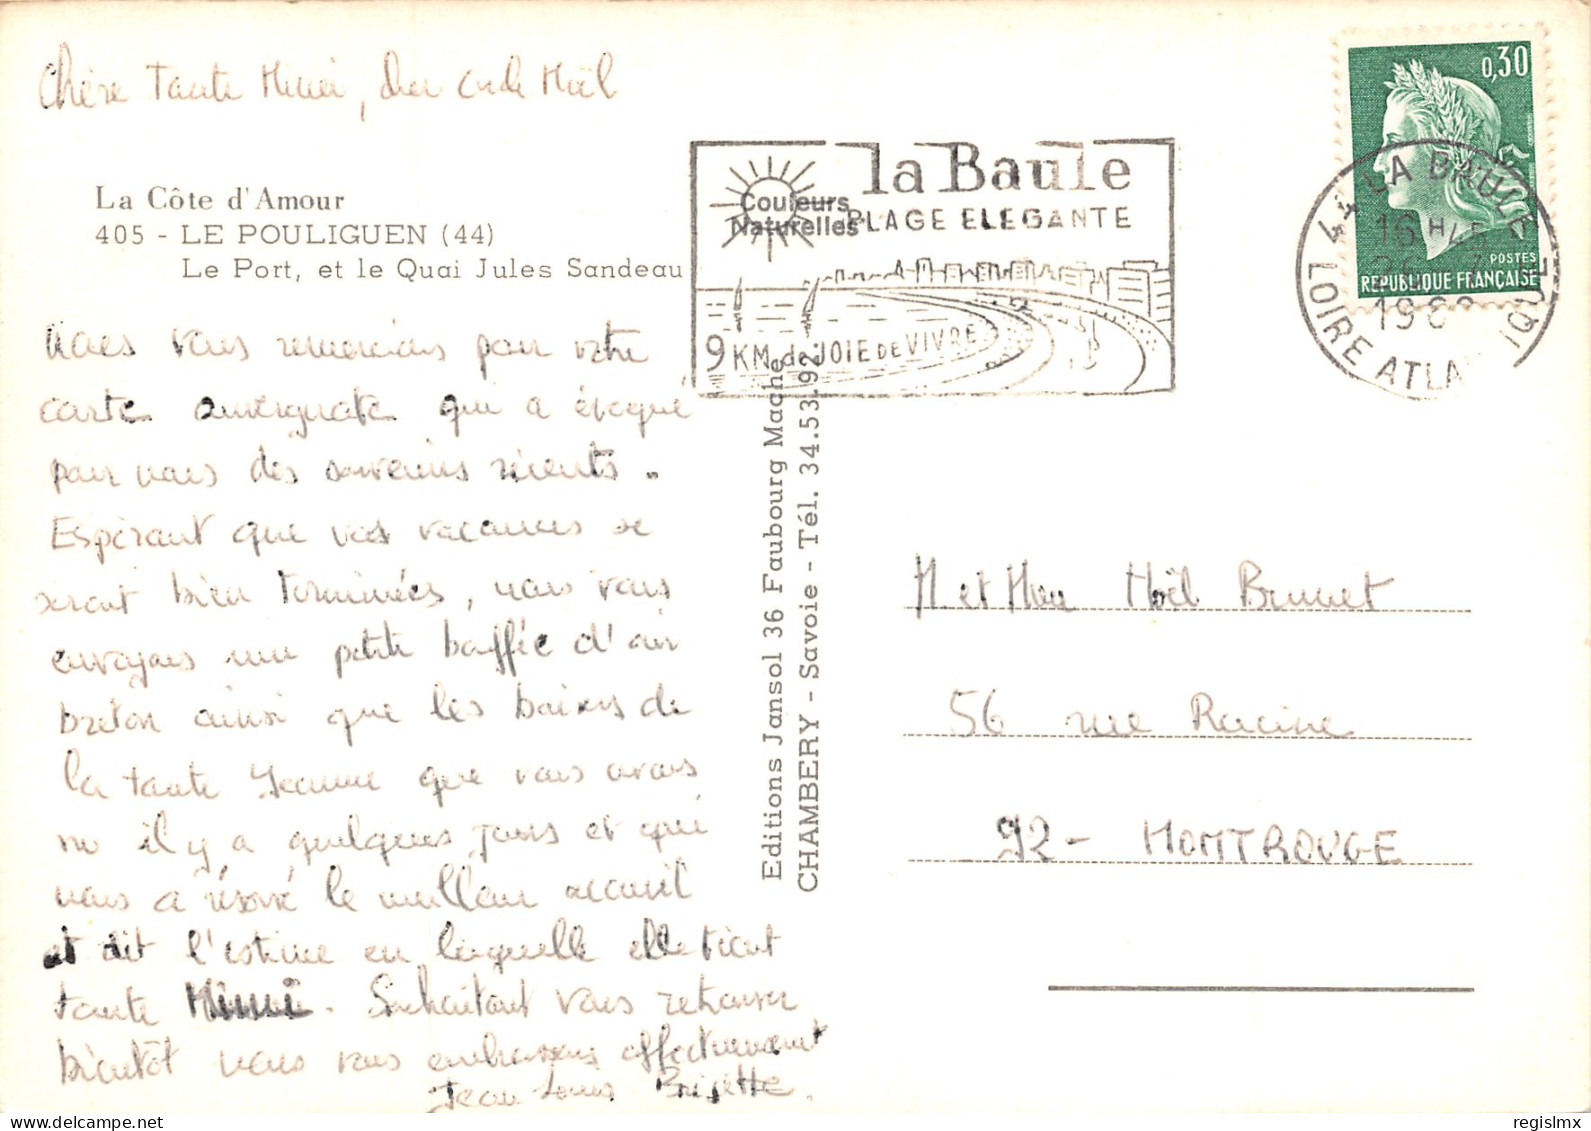 Chère Tante Mimi, cher oncle Noël
La Côte d'Amour
405 - LE POULIGUEN (44)
Le Port, et le Quai Jules Sandeau
Nous vous remercions pour votre
carte auvergnate qui a évoqué
pour nous des souvenirs récents.
Espérant que vos vacances se
seront bien terminées, nous vous
envoyons une petite bouffée d'air
breton ainsi que les baisers de
la tante Jeanne que nous avons
vu il y a quelques jours et qui
nous a réservé le meilleur accueil
et dit l'estime en laquelle elle tient
tante Mimi. Souhaitant vous retrouver
bientôt nous vous embrassons affectueusement
Jean Louis Brigitte.
Couleurs
Naturelles
la Baule
PLAGE ELEGANTE
9 KM de JOIE DE VIVRE
Editions Jansol 36 Faubourg Mache
CHAMBERY - Savoie - Tél. 34.53.92
0,30
POSTES
REPUBLIQUE FRANÇAISE
44 LA BAULE
16 H 45
LOIRE ATLANTIQUE
M et Mme Noël Brunet
56 rue Racine
92 - MONTROUGE
regislmx